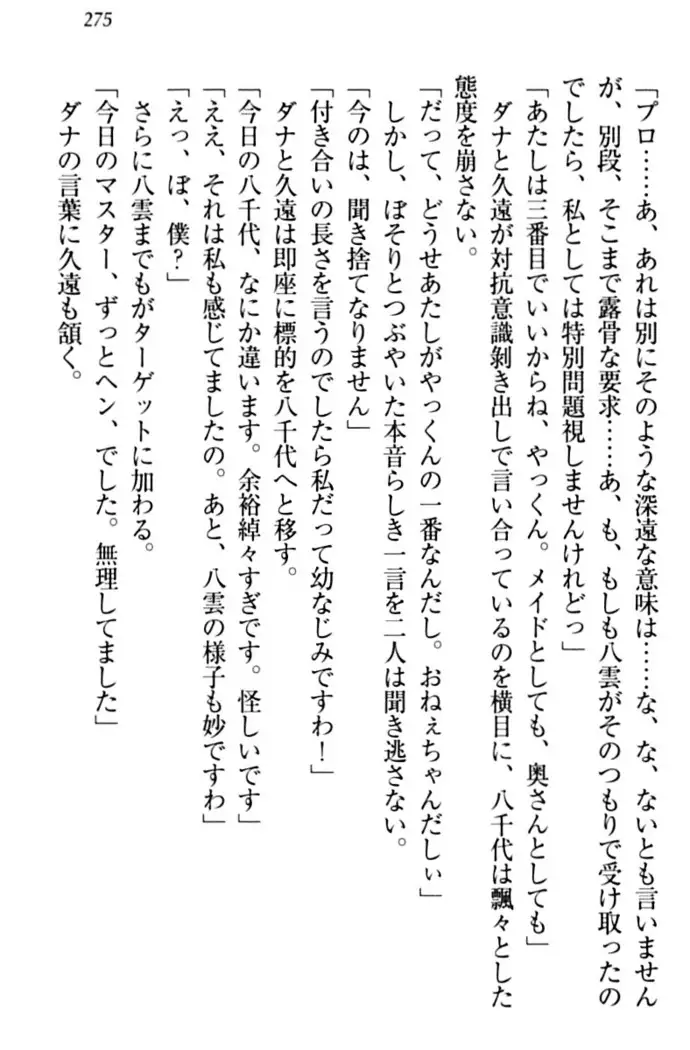 275
「プロ……あ、あれは別にそのような深遠な意味は……な、な、ないとも言いません
が、別段、そこまで露骨な要求……あ、も、もしも八雲がそのつもりで受け取ったの
でしたら、私としては特別問題視しませんけれどっ」
「あたしは三番目でいいからね、やっくん。メイドとしても、奥さんとしても」
ダナと久遠が対抗意識剝き出しで言い合っているのを横目に、八千代は飄々とした
態度を崩さない。
「だって、どうせあたしがやっくんの一番なんだし。おねぇちゃんだしぃ」
しかし、ぼそりとつぶやいた本音らしき一言を二人は聞き逃さない。
「今のは、聞き捨てなりません」
「付き合いの長さを言うのでしたら私だって幼なじみですわ！」
ダナと久遠は即座に標的を八千代へと移す。
「今日の八千代、なにか違います。余裕綽々すぎです。怪しいです」
「ええ、それは私も感じてましたの。あと、八雲の様子も妙ですわ」
「えっ、ぼ、僕？」
さらに八雲までもがターゲットに加わる。
「今日のマスター、ずっとヘン、でした。無理してました」
ダナの言葉に久遠も頷く。